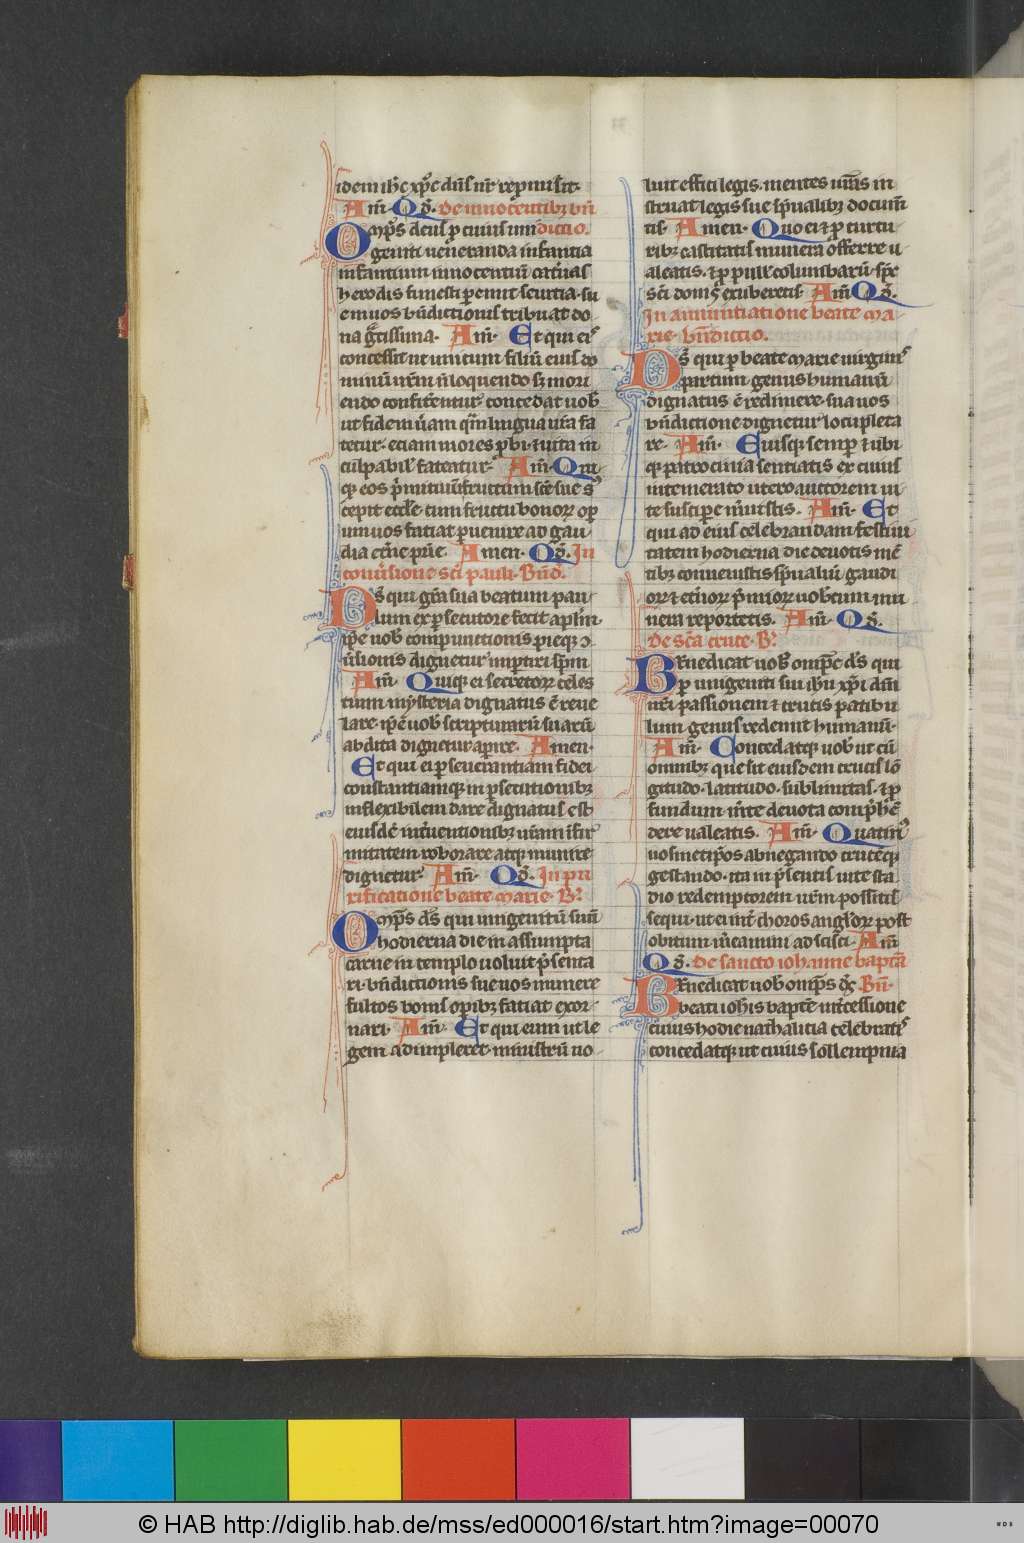 idem ihc xpc dns nr repmisit.
Am̄. Qd̄. De innocentibꝫ bn̄
Omps deus pro cuius uni dictio.
geniti ueneranda infantia
infantium innocentiū cateruas
herodis funesti peremit seuitia. su
e uos bn̄dictionis tribuat do
na gratissima. Am̄. Et qui eis
concessit ut unicum filiū eius do
minū nrm̄ nō loquendo sꝫ mori
endo confiterentur concedat uob
ut fidem uram quam lingua ura fa
tetur. etiam mores probi. et uita in
culpabil' fateatur. Am̄. Qui
qꝫ eos primitiuū fructum scē sue su
cepit eccle. cum fructu bonorꝫ oper
um uos faciat puenire ad gau
dia eterne prie. Amen. Qd̄. In
conuersione sci pauli. Bnd.
Ds qui gra sua beatum pau
lum ex persecutore fecit aplm.
ipse uob compunctionis pieqꝫ con
uersionis dignetur impartiri spm̄.
Am̄. Quiqꝫ ei secretorꝫ celes
tium mysteria dignatus ē reue
lare. ipse uob scripturarū suarū
abdita dignetur aperire. Amen.
Et qui ei perseuerantiam fidei
constantiamqꝫ in persecutionibꝫ
inflexibilem dare dignatus est
eiusdē interuentionibꝫ uram infir
mitatem roborare atqꝫ munire
dignetur. Am̄. Qd̄. In pu
rificatione beate marie. B.
Omps ds qui unigenitū suū
hodierna die in assumpta
carne in templo uoluit presenta
ri. bn̄dictionis sue uos munere
fultos bonis operibꝫ faciat exor
nari. Am̄. Et qui eum ut le
gem adimpleret ministrū uo
luit effici legis. mentes uras in
struat legis sue spualibꝫ documen
tis. Amen. Quo ei et pro turtu
ribꝫ castitatis munera offerre u
aleatis. et pro pullis columbarū spc
sci donis exuberetis. Am̄ Qd̄.
In annuntiatione beate ma
rie. bn̄dictio.
Ds qui per beate marie uirginis
partum genus humanū
dignatus ē redimere. sua uos
bn̄dictione dignetur locupleta
re. Am̄. Eiusqꝫ semper et ubi
qꝫ patrocinia sentiatis ex cuius
intemerato utero auctorem ui
te suscipere meruistis. Am̄. Et
qui ad eius celebrandam festiui
tatem hodierna die deuotis men
tibꝫ conuenistis spualiū gaudi
orꝫ et eternorꝫ premiorꝫ uobcum mu
nera reportetis. Am̄. Qd̄.
De scā cruce. B.
Benedicat uob ompc ds qui
per unigeniti sui ihu xpi dni
nri passionem et crucis patibu
lum genus redemit humanū.
Am̄. Concedatqꝫ uob ut cū
omnibꝫ que sit eiusdem crucis lon
gitudo. latitudo. sublimitas. et pro
fundum. mente deuota comprehen
dere ualeatis. Am̄. Quatinus
uosmetipsos abnegando crucēqꝫ
gestando. ita in presentis uite sta
dio redemptorem nrm possitis
sequi. ut ei inter choros anglorꝫ post
obitum mereamini adscisci. Am̄
Qd̄. De sancto iohanne baptista
Benedicat uob omps ds Bn̄.
beati iohis baptē intercessione
cuius hodie nathalitia celebratis
concedatqꝫ ut cuius sollempnia
© HAB http://diglib.hab.de/mss/ed000016/start.htm?image=00070